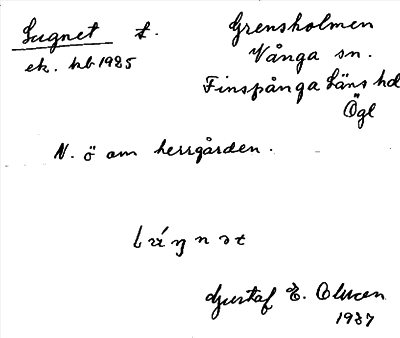 Lugnet t.
ek. kb 1935
Grensholmen
Vånga sn.
Finspånga Läns hd
Ögl
N. ö om herrgården.
Gustaf E. Olsson
1937